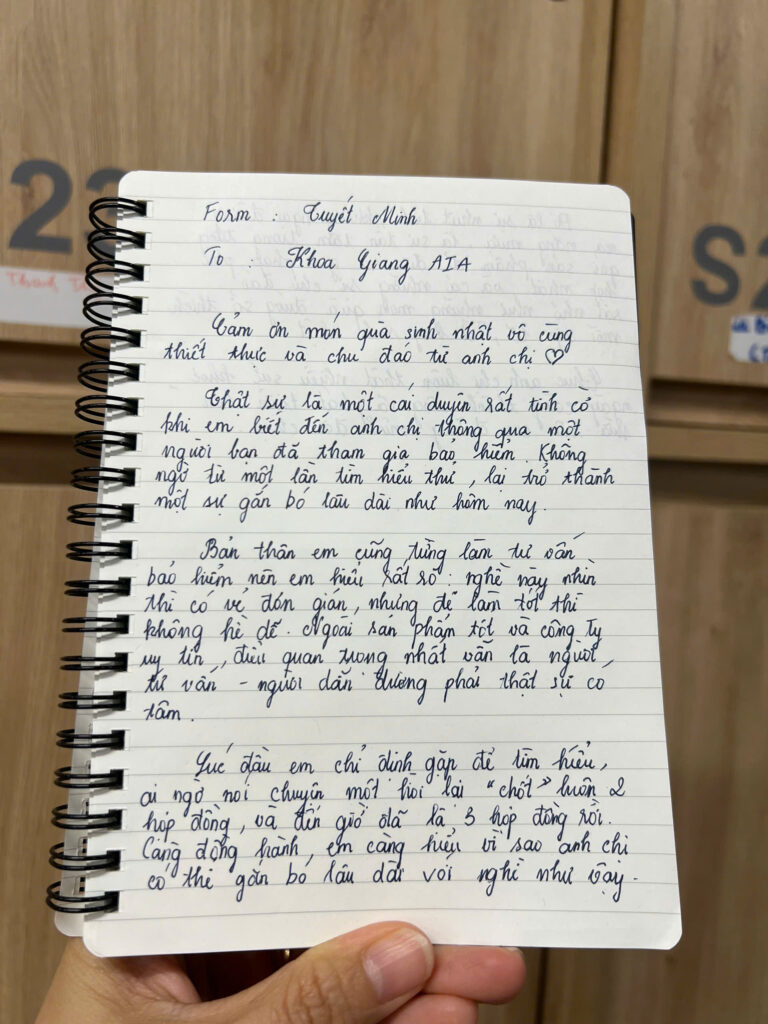 23
S2
Form : Tuyết Minh
To : Khoa Giang AIA
Cảm ơn món quà sinh nhật vô cùng
thiết thực và chu đáo từ anh chị ♡
Thật sự là một cái duyên rất tình cờ
khi em biết đến anh chị thông qua một
người bạn đã tham gia bảo hiểm. Không
ngờ từ một lần tìm hiểu thử, lại trở thành
một sự gắn bó lâu dài như hôm nay.
Bản thân em cũng từng làm tư vấn
bảo hiểm nên em hiểu rất rõ : nghề này nhìn
thì có vẻ đơn giản, nhưng để làm tốt thì
không hề dễ. Ngoài sản phẩm tốt và công ty
uy tín, điều quan trọng nhất vẫn là người
tư vấn - người dẫn đường phải thật sự có
tâm.
Lúc đầu em chỉ định gặp để tìm hiểu,
ai ngờ nói chuyện một hồi lại "chốt" luôn 2
hợp đồng, và đến giờ đã là 3 hợp đồng rồi.
Càng đồng hành, em càng hiểu vì sao anh chị
có thể gắn bó lâu dài với nghề như vậy.